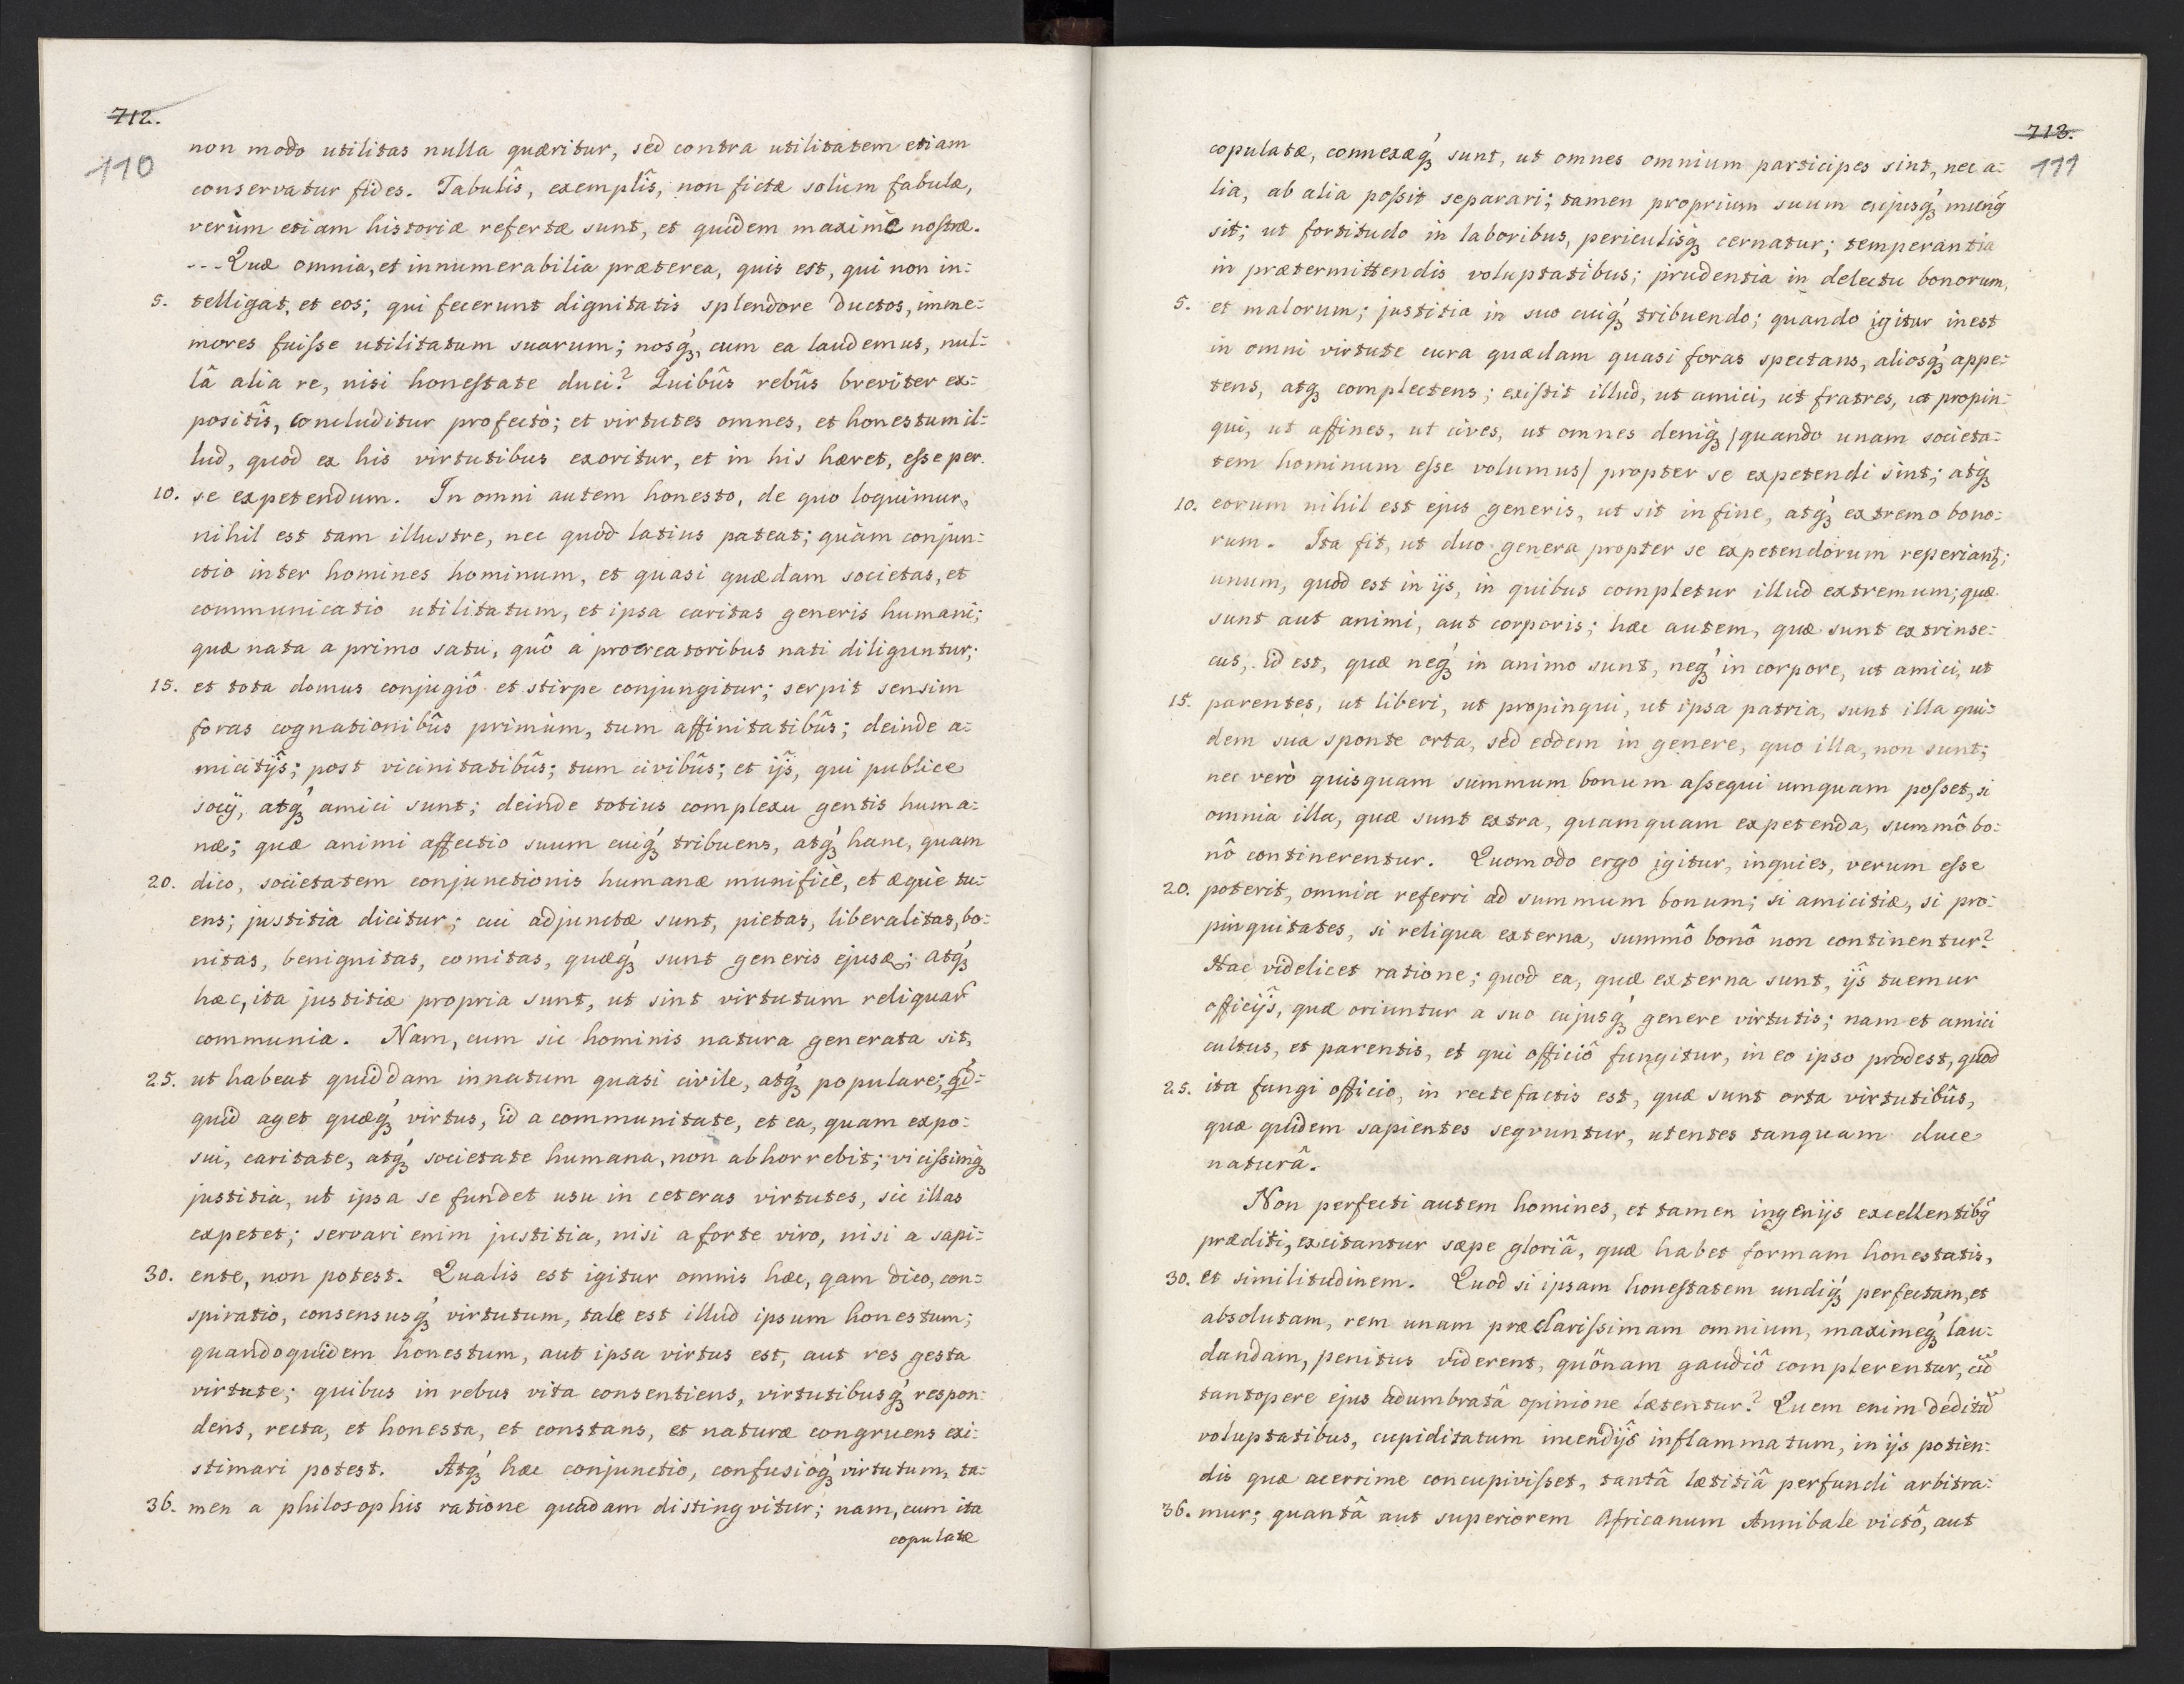 712.
110
non modo utilitas nulla quæritur, sed contra utilitatem etiam
conservatur fides. Tabulîs, exemplîs, non fictæ solùm fabulæ,
verùm etiam historiæ refertæ sunt, et quidem maximè nostræ.
---Quæ omnia, et innumerabilia præterea, quis est, qui non in=
5. telligat, et eos; qui fecerunt dignitatis splendore ductos, imme=
mores fuisse utilitatum suarum; nosq́ꝫ, cum ea laudemus, nul=
lâ alia re, nisi honestate duci? Quibûs rebûs breviter ex=
positîs, concluditur profectò; et virtutes omnes, et honestum il=
lud, quod ex his virtutibus exoritur, et in his hæret, esse per
10. se expetendum. In omni autem honesto, de quo loquimur,
nihil est tam illustre, nec quod latius pateat; quàm conjun=
ctio inter homines hominum, et quasi quædam societas, et
communicatio utilitatum, et ipsa caritas generis humani;
quæ nata a primo satu, quô à procreatoribus nati diliguntur;
15. et tota domus conjugiô et stirpe conjungitur; serpit sensim
foras cognationibûs primùm, tum affinitatibûs; deinde a=
micitijs; post vicinitatibûs; tum civibûs; et ijs, qui publice
socij, atq́ꝫ amici sunt; deinde totius complexu gentis huma=
næ; quæ animi affectio suum cuiq́ꝫ tribuens, atq́ꝫ hanc, quam
20. dico, societatem conjunctionis humanæ munificè, et æquè tu=
ens; justitia dicitur; cui adjunctæ sunt, pietas, liberalitas, bo=
nitas, benignitas, comitas, quæq́ꝫ sunt generis ejusd; atq́ꝫ
hæc, ita justitiæ propria sunt, ut sint virtutum reliquar̃
communia. Nam, cum sic hominis natura generata sit,
25. ut habeat quiddam innatum quasi civile, atq́ꝫ populare; qd=
quid aget quæq́ꝫ virtus, id a communitate, et ea, quam expo=
sui, caritate, atq́ꝫ societate humana, non abhorrebit; vicissimq́ꝫ
justitia, ut ipsa se fundet usu in ceteras virtutes, sic illas
expetet; servari enim justitia, nisi a forte viro, nisi a sapi=
30. ente, non potest. Qualis est igitur omnis hæc, qam dico, con=
spiratio, consensusq́ꝫ virtutum, tale est illud ipsum honestum;
quandoquidem honestum, aut ipsa virtus est, aut res gesta
virtute; quibus in rebus vita consentiens, virtutibusq́ꝫ respon=
dens, recta, et honesta, et constans, et naturæ congruens exi=
stimari potest. Atq́ꝫ hæc conjunctio, confusioq́ꝫ virtutum, ta=
36. men a philosophis ratione quadam distingvitur; nam, cum ita
copulatæ
713.
111
copulatæ, connexæq́ꝫ sunt, ut omnes omnium participes sint, nec a=
lia, ab alia possit separari; tamen proprium suum cujusq́ꝫ munꝰ
sit; ut fortitudo in laboribus, periculisq́ꝫ cernatur; temperantia
in prætermittendis voluptatibus; prudentia in delectu bonorum,
5. et malorum; justitia in suo cuiq́ꝫ tribuendo; quando igitur inest
in omni virtute cura quædam quasi foras spectans, aliosq́ꝫ appe=
tens, atqꝫ complectens; existit illud, ut amici, ut fratres, ut propin=
qui, ut affines, ut cives, ut omnes deniq́ꝫ /quando unam societa=
tem hominum esse volumus/ propter se expetendi sint; atq́ꝫ
10. eorum nihil est ejus generis, ut sit in fine, atq́ꝫ extremo bono=
rum. Ita fit, ut duo genera propter se expetendorum reperiantꝫ;
unum, quod est in ijs, in quibus completur illud extremum; quæ
sunt aut animi, aut corporis; hæc autem, quæ sunt extrinse=
cus, id est, quæ neq́ꝫ in animo sunt, neq́ꝫ in corpore, ut amici, ut
15. parentes, ut liberi, ut propinqui, ut ipsa patria, sunt illa qui=
dem sua sponte orta, sed eodem in genere, quo illa, non sunt;
nec verò quisquam summum bonum assequi umquam posset, si
omnia illa, quæ sunt extra, quamquam expetenda, summô bo=
nô continerentur. Quomodo ergo igitur, inquies, verum esse
20. poterit, omnia referri ad summum bonum; si amicitiæ, si pro=
pinquitates, si reliqua externa, summô bonô non continentur?
Hac videlicet ratione; quod ea, quæ externa sunt, ijs tuemur
officijs, quæ oriuntur a suo cujusq́ꝫ genere virtutis; nam et amici
cultus, et parentis, et qui officiô fungitur, in eo ipso prodest, quod
25. ita fungi officio, in recte factis est, quæ sunt orta virtutibûs,
quæ quidem sapientes segvuntur, utentes tanquam duce
naturâ.
Non perfecti autem homines, et tamen ingenijs excellentibꝰ
præditi, excitantur sæpe gloriâ, quæ habet formam honestatis,
30. et similitudinem. Quod si ipsam honestatem undiq́ꝫ perfectam, et
absolutam, rem unam præclarissimam omnium, maximeq́ꝫ lau=
dandam, penitus viderent, quônam gaudiô complerentur, cũ
tantopere ejus adumbratâ opinione lætentur? Quem enim deditũ
voluptatibus, cupiditatum incendijs inflammatum, in ijs potien=
dis quæ acerrime concupivisset, tantâ lætitiâ perfundi arbitra=
36. mur; quantâ aut superiorem Africanum Annibale victô, aut